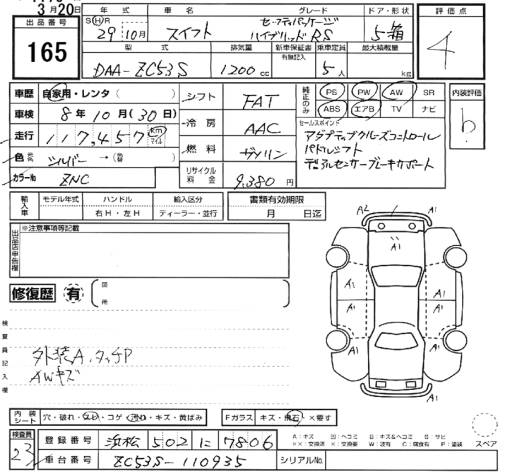 3月20日
出品番号
165
年式
車名
グレード
ドア・形状
評価点
S H R
29年10月
スイフト
セーフティパッケージ
ハイブリッドRS
5 箱
4
型式
排気量
新車保証書
有無記入
乗車定員
最大積載量
DAA-ZC53S
1200 cc
5人
kg
車歴 自家用・レンタ ( )
車検 8年10月(30日)
走行 117,457 km マイル
色 シルバー →( )
カラーNo ZNC
シフト FAT
冷房 AAC
燃料 ガソリン
リサイクル料金 9,380円
純正のみ
PS PW AW SR
ABS エアB TV ナビ
セールスポイント
アダプティブクルーズコントロール
パドルシフト
デュアルセンサーブレーキサポート
内装評価
b
輸入車
モデル年式 ハンドル 輸入区分
右H・左H ディーラー・並行
書類有効期限
月 日迄
※注意事項等記載
出品店申告欄
修復歴 有
図
所
検査員記入欄
外装A、タッチP
AWキズ
A2 A1
A1
A1 A1
A1 A1
A1
内装シート
穴・破れ・コゲ・キズ・黄ばみ
Fガラス キズ・飛石・×要す
検査員
23
登録番号 浜松 502 に 7806
車台番号 ZC53S-110935
シリアルNo.
A:キズ U:ヘコミ B:キズ&ヘコミ S:サビ
××:交換済 ×:要交換 W:波有 C:腐食有 P:塗装
スペア